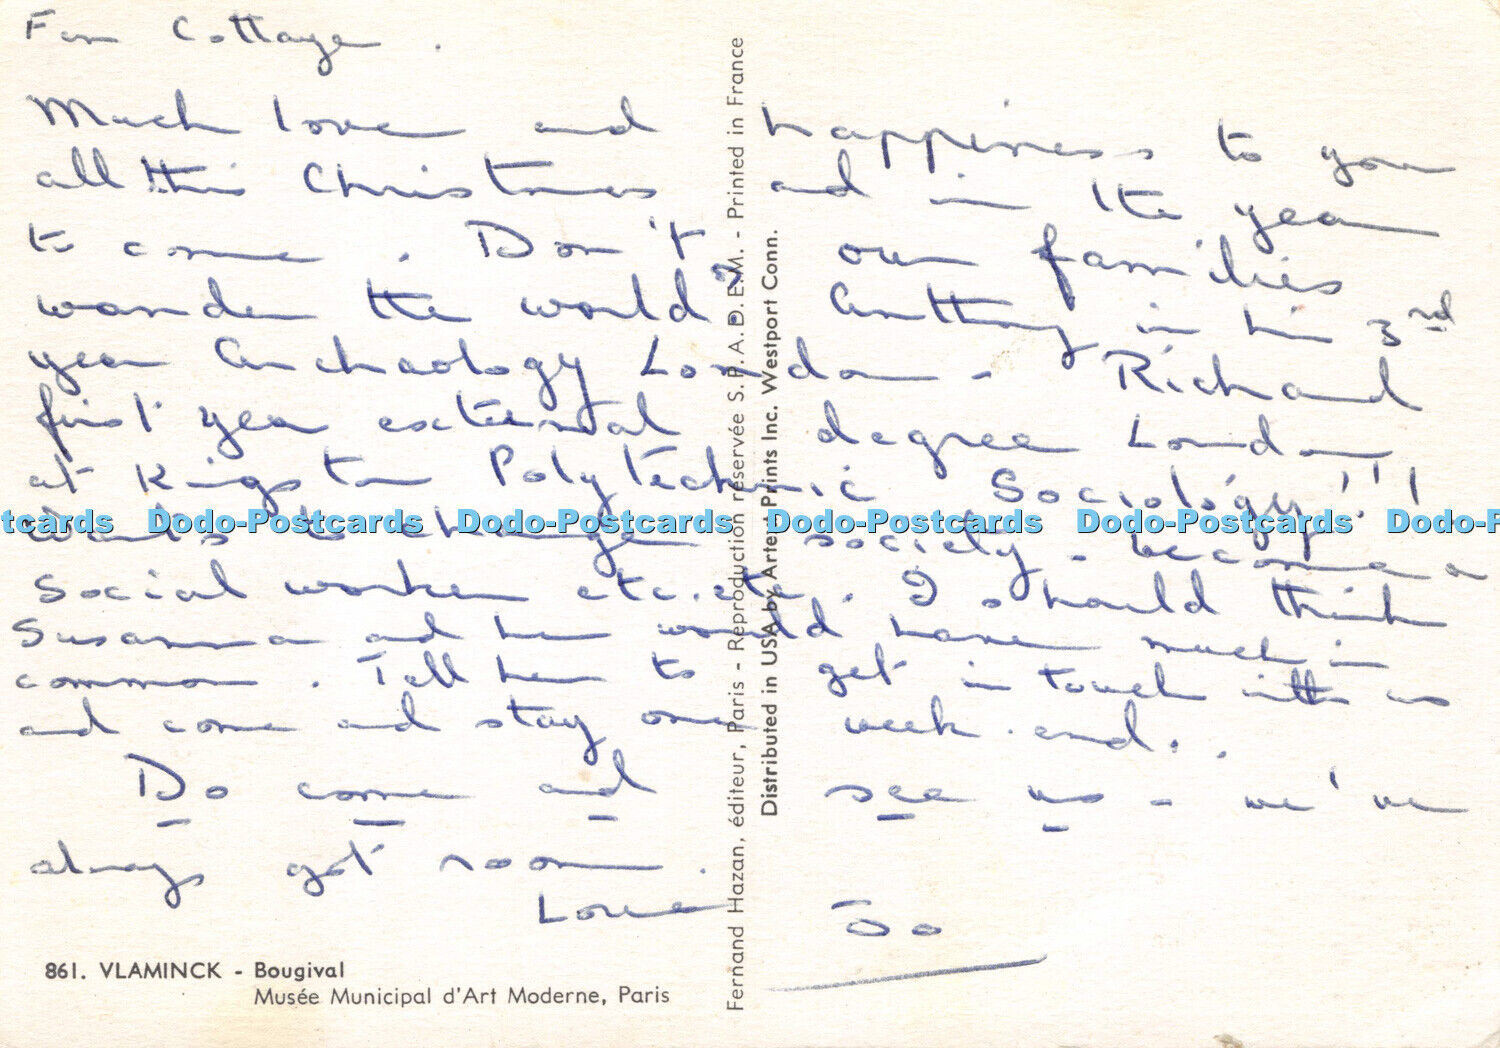 Cottage.
Much love and happiness to you
all this Christmas and in the year
to come. Don't our families
wander the world? Anthony in his 3rd
year Archaology London - Richard
first year external degree London
at Kingston Polytechnic Sociology!!!
wants to change society - become a
Social worker etc. etc. I should think
Susanna and him would have much in
common. Tell her to get in touch with us
and come and stay one week-end..
Do come and see us - we've
always got room.
Love Jo
861. VLAMINCK - Bougival
Musée Municipal d'Art Moderne, Paris
Fernand Hazan, éditeur, Paris - Reproduction réservée S.P.A.D.E.M. - Printed in France
Distributed in USA by Artext Prints Inc. Westport Conn.
tcards Dodo-Postcards Dodo-Postcards Dodo-Postcards Dodo-Postcards Dodo-P